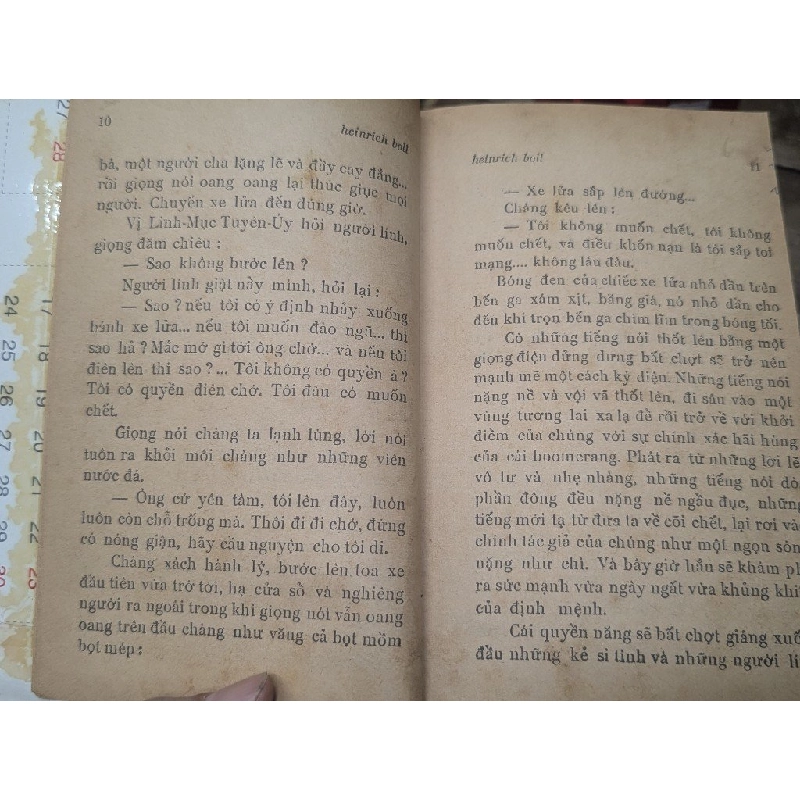 10
heinrich boll
bà, một người cha lặng lẽ và đầy cay đắng...
rồi giọng nói oang oang lại thúc giục mọi
người. Chuyến xe lửa đến đúng giờ.
Vị Linh-Mục Tuyên-Úy hỏi người lính,
giọng đăm chiêu :
— Sao không bước lên ?
Người lính giật nẩy mình, hỏi lại :
— Sao ? nếu tôi có ý định nhảy xuống
bánh xe lửa... nếu tôi muốn đào ngũ... thì
sao hả ? Mắc mớ gì tới ông chớ... và nếu tôi
điên lên thì sao ?... Tôi không có quyền à ?
Tôi có quyền điên chớ. Tôi đâu có muốn
chết.
Giọng nói chàng ta lạnh lùng, lời nói
tuôn ra khỏi môi chàng như những viên
nước đá.
— Ông cứ yên tâm, tôi lên đây, luôn
luôn còn chỗ trống mà. Thôi đi đi chớ, đừng
có nóng giận, hãy cầu nguyện cho tôi đi.
Chàng xách hành lý, bước lên toa xe
đầu tiên vừa trờ tới, hạ cửa sổ và nghiêng
người ra ngoài trong khi giọng nói vẫn oang
oang trên đầu chàng như văng cả bọt mồm
bọt mép :
24 25 26 27 28 29 30
17 18 19 20 21 22 23
27
28
heinrich boll
11
— Xe lửa sắp lên đường...
Chàng kêu lên :
— Tôi không muốn chết, tôi không
muốn chết, và điều khốn nạn là tôi sắp toi
mạng.... không lâu đâu.
Bóng đen của chiếc xe lửa nhỏ dần trên
bến ga xám xịt, băng giá, nó nhỏ dần cho
đến khi trọn bến ga chìm lỉm trong bóng tối.
Có những tiếng nói thốt lên bằng một
giọng điệu dửng dưng bất chợt sẽ trở nên
mạnh mẽ một cách kỳ diệu. Những tiếng nói
nặng nề và vội vã thốt lên, đi sâu vào một
vùng tương lai xa lạ để rồi trở về với khởi
điểm của chúng với sự chính xác hãi hùng
của cái boomerang. Phát ra từ những lời lẽ
vô tư và nhẹ nhàng, những tiếng nói đó,
phần đông đều nặng nề ngầu đục, những
tiếng mới lạ từ đưa ta về cõi chết, lại rơi và
chính tác giả của chúng như một ngọn són
nặng như chì. Và bây giờ hắn sẽ khám ph
ra sức mạnh vừa ngây ngất vừa khủng khi
của định mệnh.
Cái quyền năng sẽ bất chợt giáng xuố
đầu những kẻ si tình và những người lí